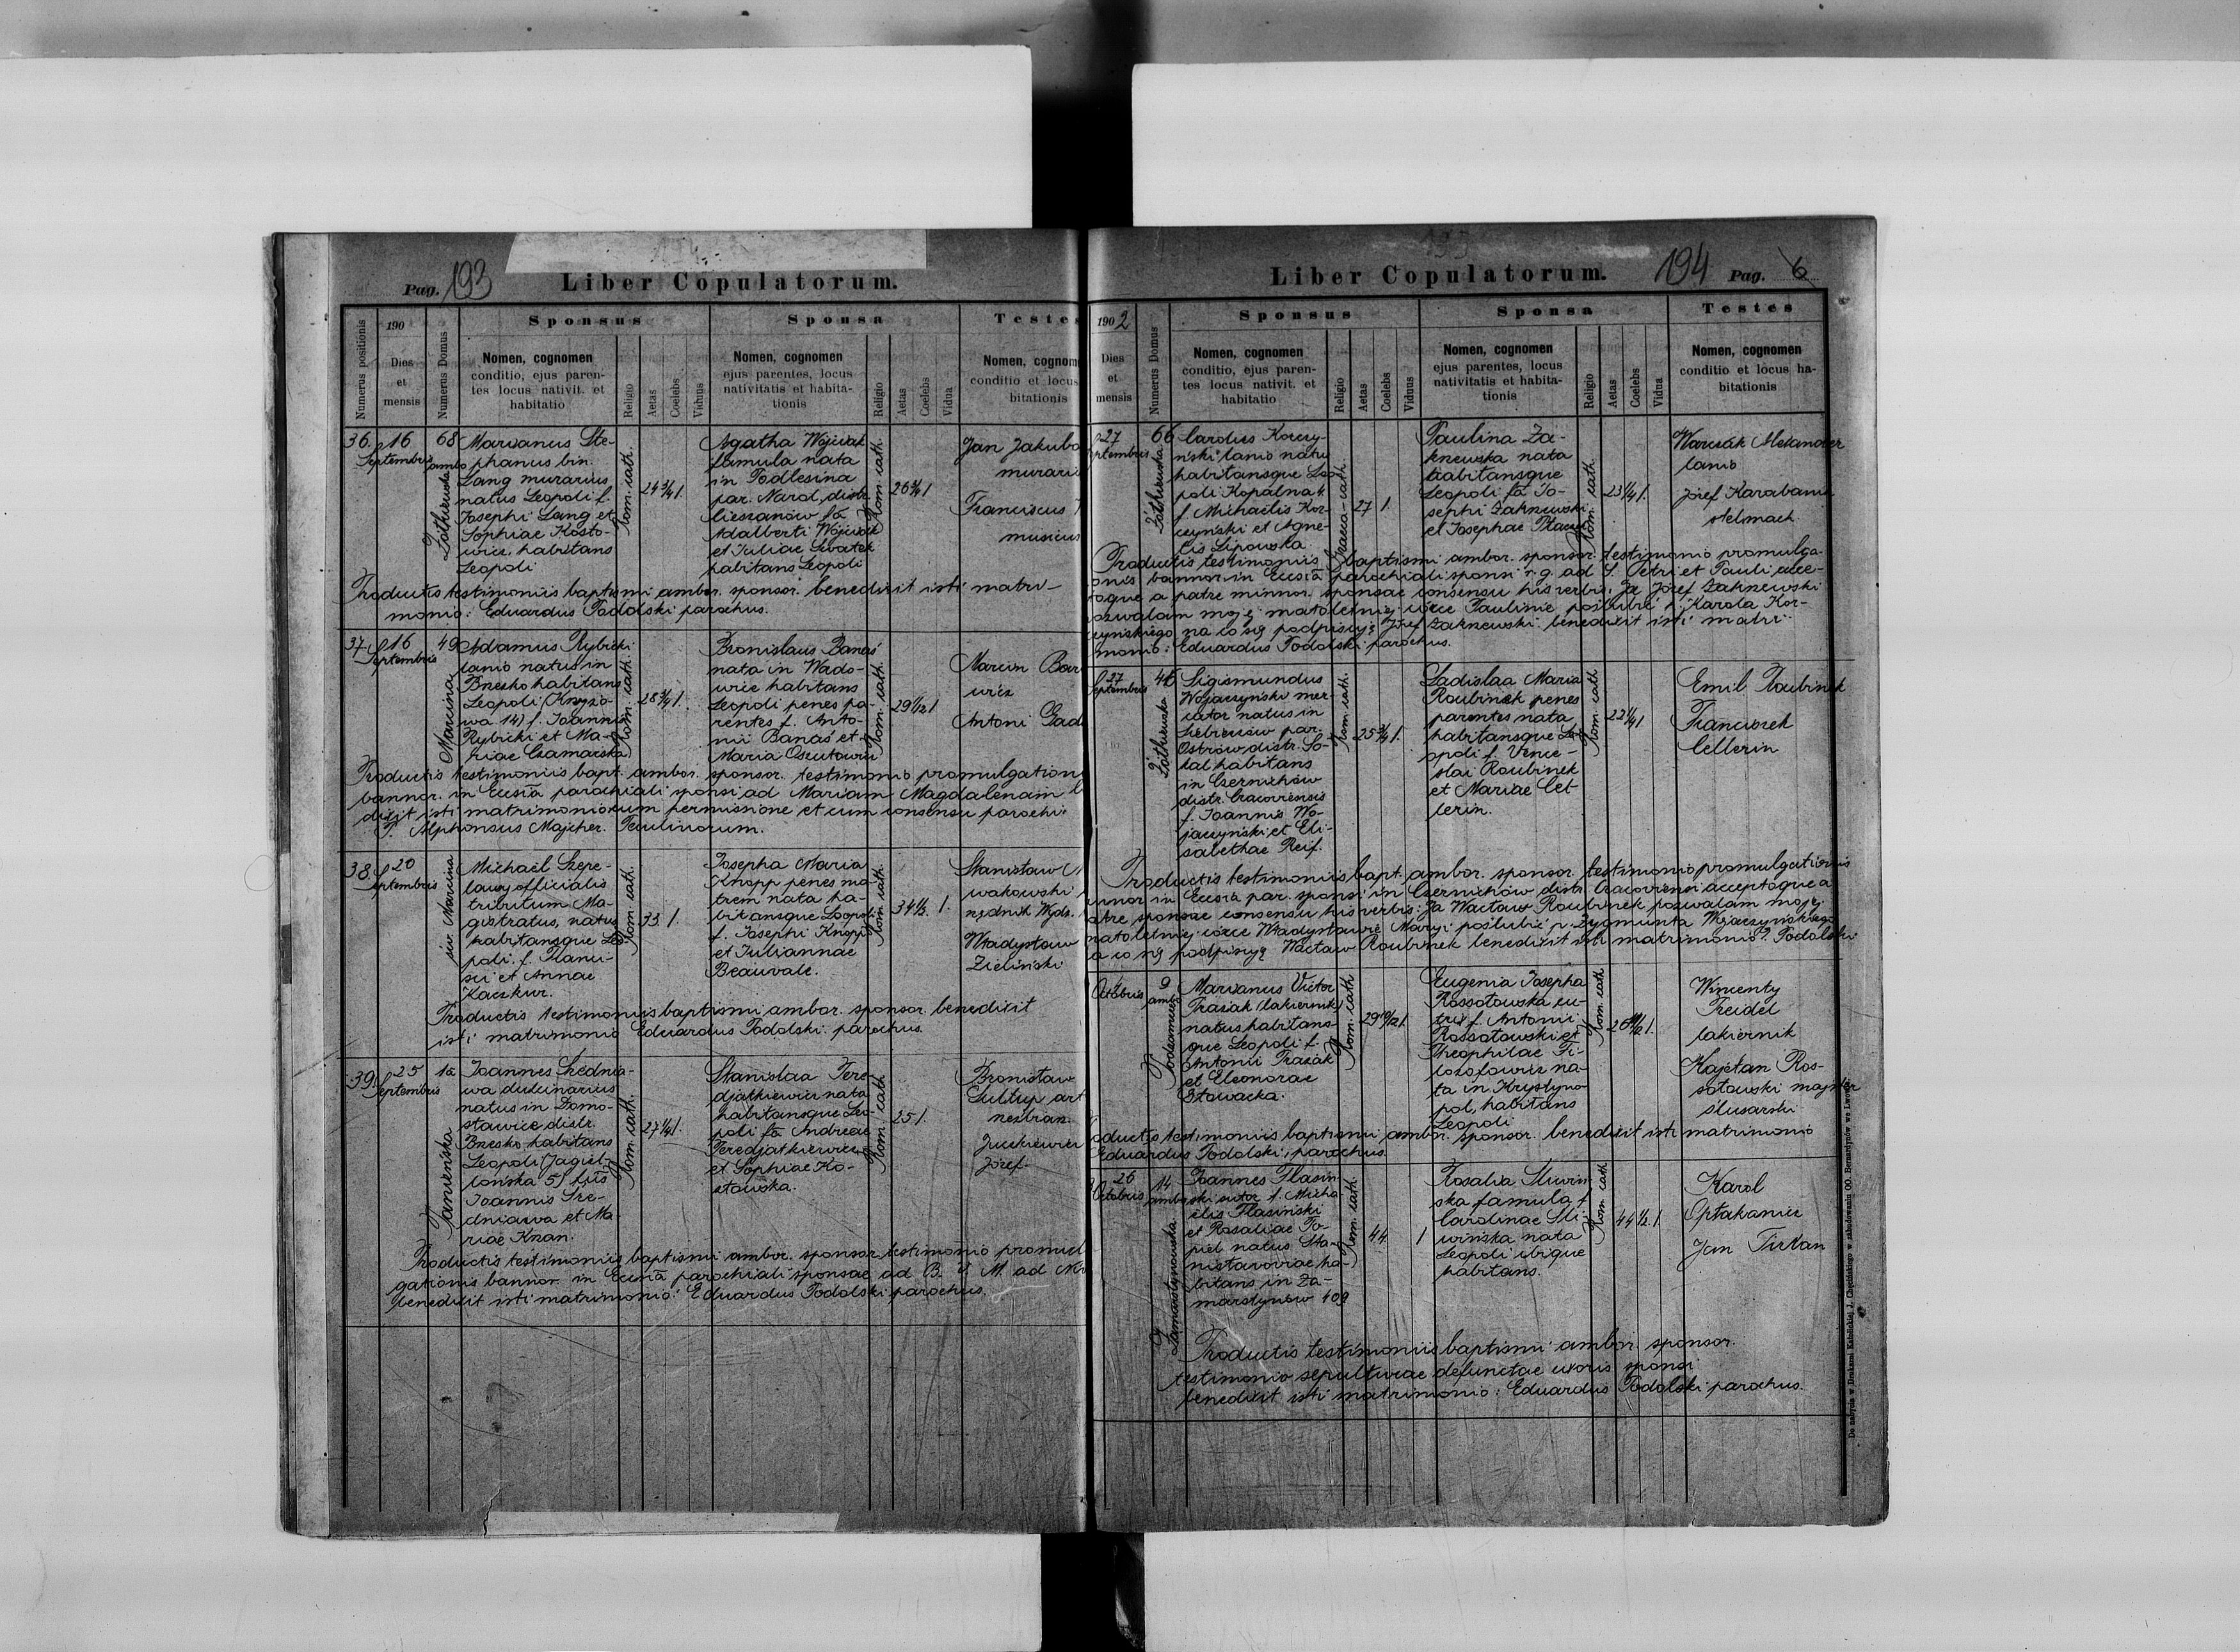 Pag. 193
Liber Copulatorum.
Numerus positionis
190
Dies
et
mensis
Numerus Domus
Sponsus
Nomen, cognomen
conditio, ejus paren-
tes locus nativit. et
habitatio
Religio
Aetas
Coelebs
Viduus
Sponsa
Nomen, cognomen
ejus parentes, locus
nativitatis et habita-
tionis
Religio
Aetas
Coelebs
Vidua
Testes
Nomen, cognom
conditio et locus
bitationis
36.
16
Septembris
68
ambo
Żółkiewska
Marianus Ste-
phanus bin.
Lang murarius
natus Leopoli f.
Josephi Lang et
Sophiae Kosto-
wicz, habitans
Leopoli
Rom. cath.
24 3/4 1.
Agatha Wójciak
famula nata
in Podlesina
par. Narol, distr.
Cieszanów fa
Adalberti Wójciak
et Juliae Swatek
habitans Leopoli
Rom. cath.
26 3/4 1
Jan Jakubo
murari
Franciscus
musicus
Productis testimoniis baptismi ambor. sponsor. benedixit isti matri-
monio: Eduardus Podolski parochus.
37.
16
Septembris
49
Marcina
Adamus Rybicki
lanio natus in
Brzesko habitans
Leopoli (Krzyżo-
wa 14) f. Joannis
Rybicki et Ma-
riae Czamarska
Rom. cath.
28 3/4 1.
Bronislaus Banaś
nata in Wado-
wice habitans
Leopoli penes pa-
rentes f. Anto-
nii Banaś et
Maria Oseutowicz
Rom. cath.
29 1/12 1
Marcin Bar
wicz
Antoni Gad
Productis testimoniis bapt. ambor. sponsor. testimonio promulgation
bannor. in Ecclesia parochiali sponsi ad Mariam Magdalenam b
dixit isti matrimonio cum permissione et cum consensu parochi:
P. Alphonsus Majcher. Paulinorum.
38.
20
Septembris
św. Marcina
Michaël Szere-
lawy officialis
tributum Ma-
gistratus, natus
habitansque Leo-
poli. f. Stani-
sii et Annae
Kaczkur.
Rom. cath.
33 1.
Josepha Maria
Knopp penes ma-
trem nata ha-
bitansque Leopoli
f. Josephi Knopp
et Juliannae
Beauvale.
Rom. cath.
34 1/3. 1.
Stanisław
wakowski
rzędnik Wyds.
Władysław
Zieliński
Productis testimoniis baptismi ambor. sponsor. benedixit
isti matrimonio Eduardus Podolski: parochus.
39.
25
Septembris
1a
Panieńska
Joannes Średnia-
wa dulcinarius
natus in Domo-
sławice distr.
Brzesko habitans
Leopoli (Jagiel-
lońska 5) filis
Joannis Śre-
dniawa et Ma-
riae Knan.
Rom. cath.
27 1/4 1.
Stanislaa Tere
djatkiewicz nata
habitansque Leo-
poli fa Andreae
Teredjatkiewicz
et Sophiae Ko-
stowska.
Rom. cath
25 1.
Bronisław
Sultup art
neźbiar.
Juckiewicz
Józef
Productis testimoniis baptismi ambor. sponsor testimonio promul
gationis bannor in Ecclesia parochiali sponsae ad B. V. M. ad Niv
benedixit isti matrimonio: Eduardus Podolski parochus.
Liber Copulatorum.
194
Pag. 6
1902
Dies
et
mensis
Numerus Domus
Sponsus
Nomen, cognomen
conditio, ejus paren-
tes locus nativit. et
habitatio
Religio
Aetas
Coelebs
Viduus
Sponsa
Nomen, cognomen
ejus parentes, locus
nativitatis et habita-
tionis
Religio
Aetas
Coelebs
Vidua
Testes
Nomen, cognomen
conditio et locus ha-
bitationis
27
ptembris
66
Żółkiewska
Carolus Korczy-
ński lanio natus
habitansque Leo
poli Kopalna 4.
f. Michaëlis Kor-
czyński et Agne-
tis Lipowska
Graeco-cath.
27 1.
Paulina Za-
krzewska nata
habitansque
Leopoli fa Jo-
sephi Zakrzewski
et Josephae Placek
Rom. cath.
23 1/4 1.
Warczak Alexander
lanio
Józef Karabanik
stelmach
Productis testimoniis baptismi ambor. sponsor. testimonio promulga-
onis bannor. in Ecclesia parochiali sponsi r. g. ad S. Petri et Pauli acce-
toque a patre minnor. sponsae consensu his verbis: Ja Józef Zakrzewski
ozwalam mojej małoletniej córce Paulinie poślubić p. Karola Kor-
czyńskiego na co się podpisuję Józef Zakrzewski. benedixit isti matri-
monio: Eduardus Podolski parochus.
27
Septembris
46
Żółkiewska
Sigismundus
Wojaczyński mer-
cator natus in
Chebrców par.
Ostrów, distr. So-
kal habitans
in Czernichów
distr. Cracoviensis
f. Joannis Wo-
jaczyński et Eli-
sabethae Reif.
Rom. cath.
25 3/4 1.
Ladislaa Maria
Roubinek penes
parentes nata
habitansque Le
opoli f. Vence-
slai Roubinek
et Mariae Cel-
lerin.
Rom. cath
22 1/4 1
Emil Roubinek
Franciszek
Cellerin
Productis testimoniis bapt. ambor. sponsor. testimonio promulgationis
nnor in Ecclesia par. sponsi in Czernichów distr. Cracoviensi acceptoque a
atre sponsae consensu his verbis: Ja Wacław Roubinek pozwalam mojej
małoletniej córce Władysławie Maryi poślubić p. Zygmunta Wojaczyńskiego
a co się podpisuję Wacław Roubinek benedixit isti matrimonio: Podolski
Octobris
9
ambo
Podzamcze
Marianus Victor
Trzaiak (lakiernik)
natus habitans-
que Leopoli f.
Antonii Trzaiak
et Eleonorae
Stawacka.
Rom. cath
29 10/12 1.
Eugenia Josepha
Rossołowska eu-
trix f. Antonii
Rossołowski et
Theophilae Fi-
lozofowicz na-
ta in Krystyno-
pol, habitans
Leopoli
Rom. cath
20 11/12 1.
Wincenty
Freidel
lakiernik
Kajetan Ros-
sołowski majster
ślusarski
oductis testimoniis baptismi ambor. sponsor. benedixit isti matrimonio
Eduardus Podolski, parochus.
26
Octobris
14
ambo
Zamarstynowska
Joannes Flasiń-
ski sutor f. Micha-
ëlis Flasiński
et Rosaliae Po-
piel natus Sta-
nislaoviae ha-
bitans in Za-
marstynów 109
Rom. cath.
44 1
Rosalia Śliwiń-
ska famula f.
Carolinae Śli-
wińska nata
Leopoli ibique
habitans.
Rom. cath
44 1/2. 1
Karol
Optakanicz
Jan Firkan
Productis testimoniis baptismi ambor. sponsor.
testimonio sepulturae defunctae uxoris sponsi
benedixit isti matrimonio: Eduardus Podolski parochus.